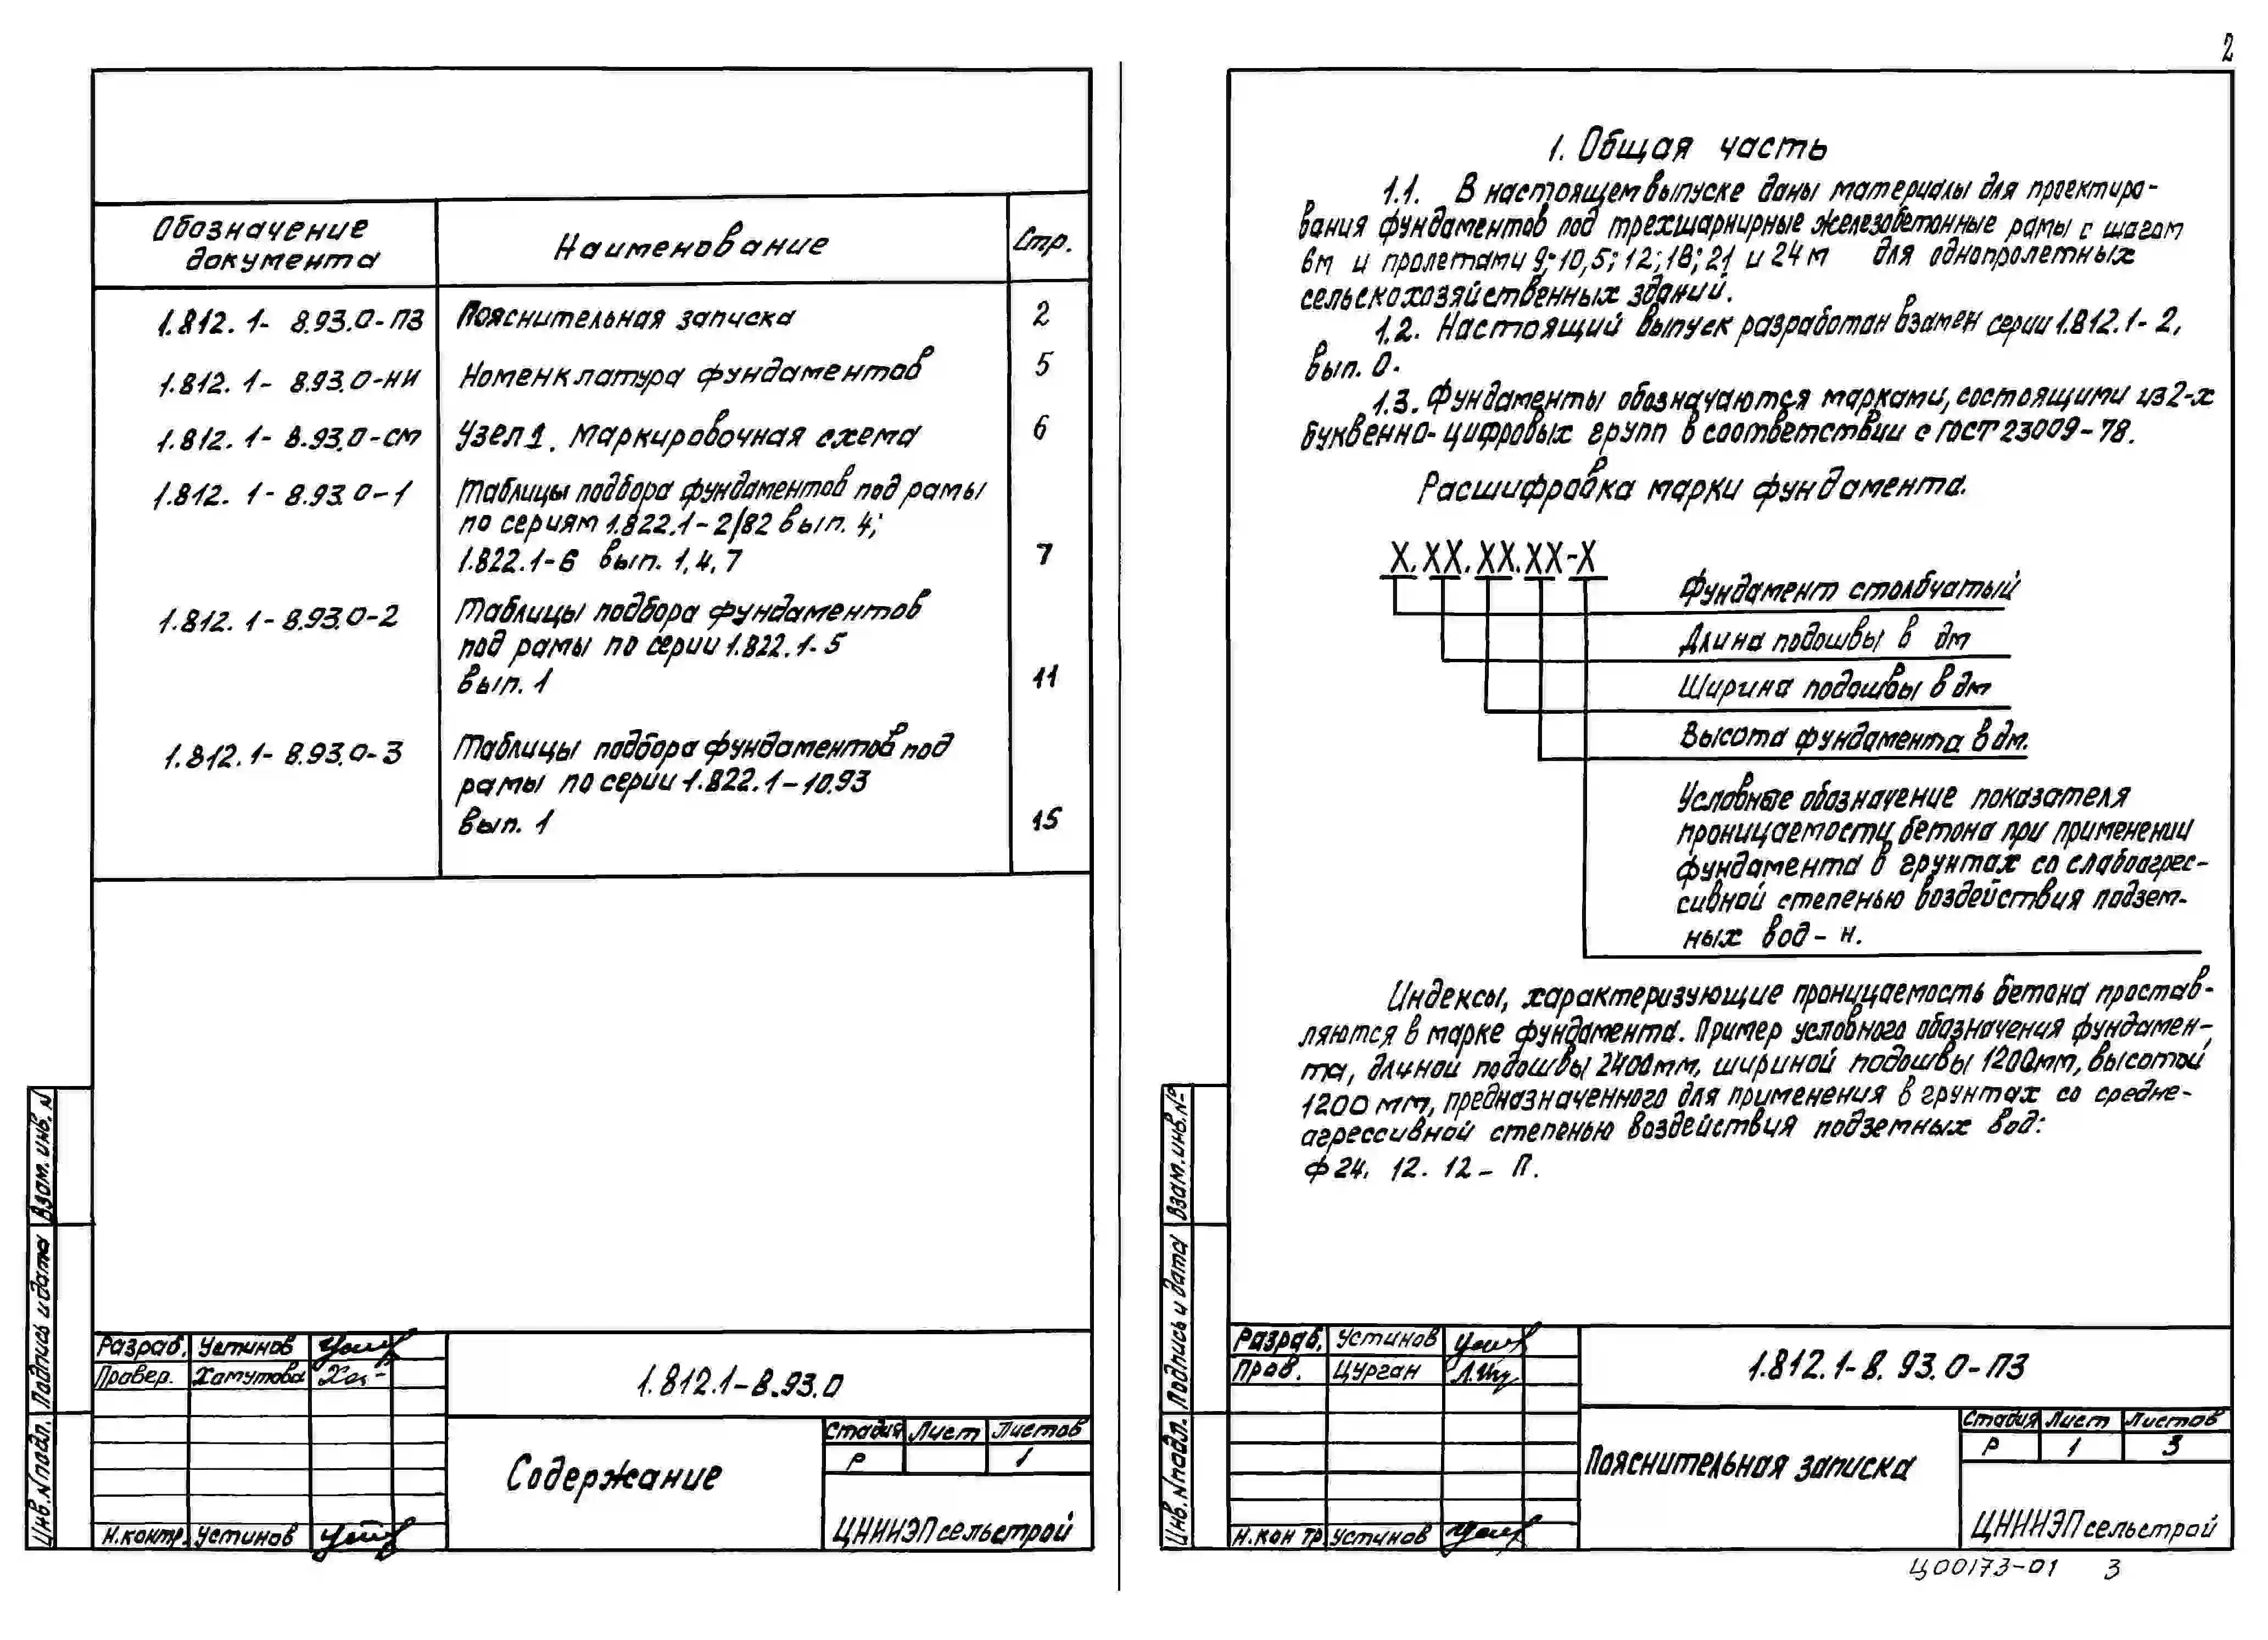 Обозначение документа	Наименование	Стр.
1.812.1-8.93.0-ПЗ	Пояснительная записка	2
1.812.1-8.93.0-НИ	Номенклатура фундаментов	5
1.812.1-8.93.0-СМ	Узел 1. Маркировочная схема	6
1.812.1-8.93.0-1	Таблицы подбора фундаментов под рамы
по сериям 1.822.1-2/82 вып. 4;
1.822.1-6 вып. 1, 4, 7	7
1.812.1-8.93.0-2	Таблицы подбора фундаментов
под рамы по серии 1.822.1-5
вып. 1	11
1.812.1-8.93.0-3	Таблицы подбора фундаментов под
рамы по серии 1.822.1-10.93
вып. 1	15
Взам. инв. N
Подпись и дата
Инв. N подл.
Разраб. Устинов
Провер. Хамутова
Н.контр. Устинов
1.812.1-8.93.0
Содержание
Стадия Лист Листов
Р 1
ЦНИИЭПсельстрой
2
1. Общая часть
1.1. В настоящем выпуске даны материалы для проектиро-
вания фундаментов под трехшарнирные железобетонные рамы с шагом
6м и пролетами 9; 10,5; 12; 18; 21 и 24 м для однопролетных
сельскохозяйственных зданий.
1.2. Настоящий выпуск разработан взамен серии 1.812.1-2,
вып. 0.
1.3. Фундаменты обозначаются марками, состоящими из 2-х
буквенно-цифровых групп в соответствии с ГОСТ 23009-78.
Расшифровка марки фундамента.
Х.ХХ.ХХ.ХХ-Х
Фундамент столбчатый
Длина подошвы в дм
Ширина подошвы в дм
Высота фундамента в дм.
Условные обозначение показателя
проницаемости бетона при применении
фундамента в грунтах со слабоагрес-
сивной степенью воздействия подзем-
ных вод - н.
Индексы, характеризующие проницаемость бетона простав-
ляются в марке фундамента. Пример условного обозначения фундамен-
та, длиной подошвы 2400мм, шириной подошвы 1200мм, высотой
1200 мм, предназначенного для применения в грунтах со средне-
агрессивной степенью воздействия подземных вод:
Ф 24. 12. 12 - П.
Взам. инв. №
Подпись и дата
Инв. N подл.
Разраб. Устинов
Пров. Цурган
Н.контр. Устинов
1.812.1-8.93.0-ПЗ
Пояснительная записка
Стадия Лист Листов
Р 1 3
ЦНИИЭПсельстрой
Ц00173-01 3